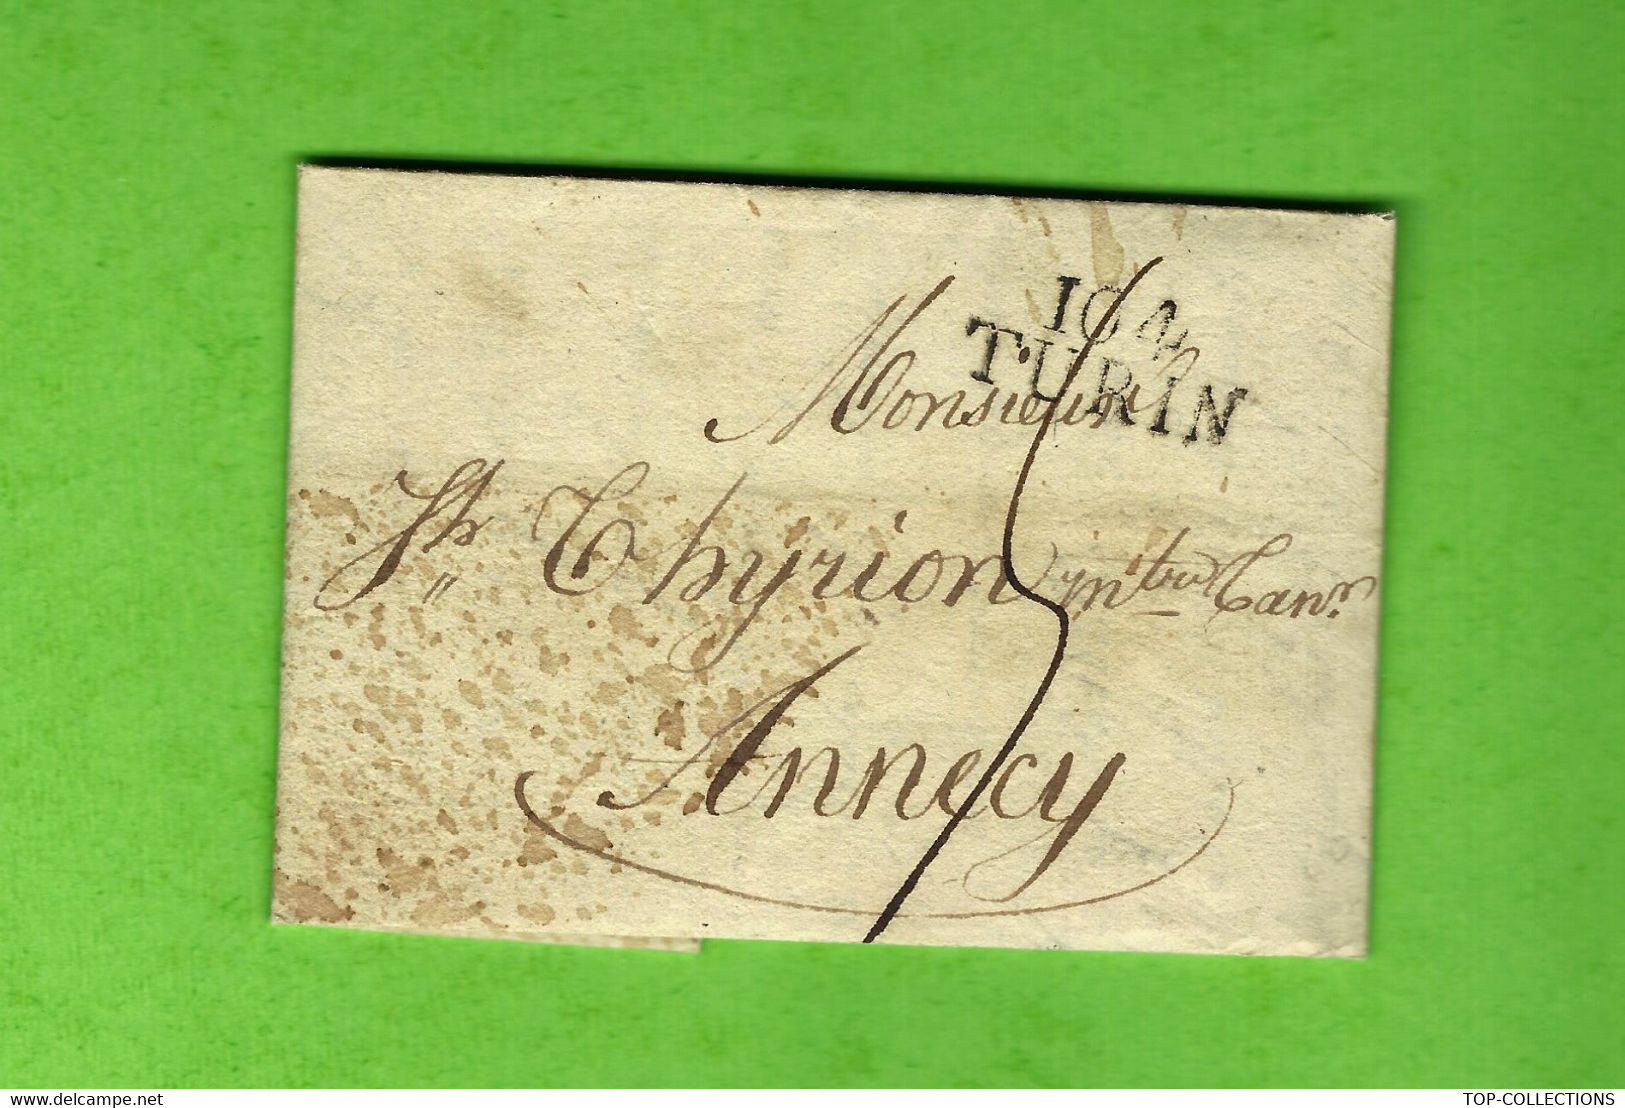 104
TURIN
Monsieur
Jh Thyrion
Annecy
www.delcampe.net
TOP-COLLECTIONS